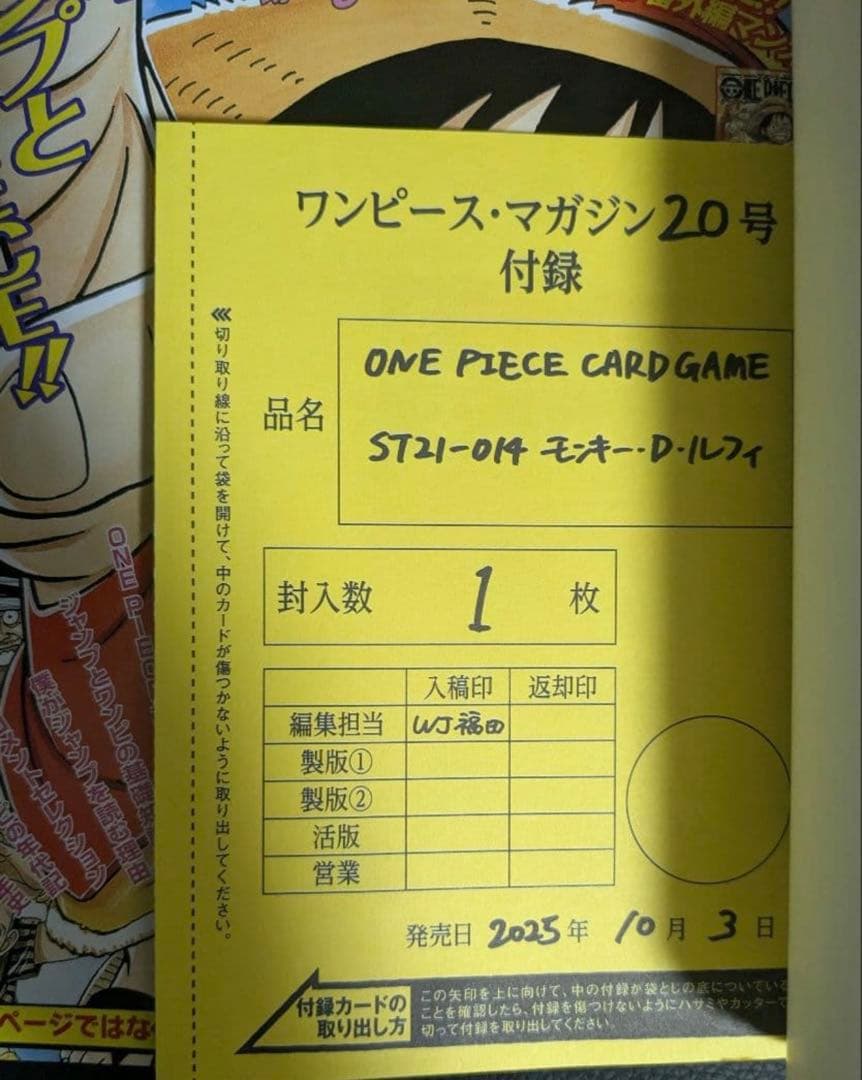 ワンピース・マガジン20号
付録
品名
ONE PIECE CARD GAME
ST21-014 モンキー・D・ルフィ
封入数 1 枚
入稿印 返却印
編集担当 WJ福田
製版①
製版②
活版
営業
発売日 2025年 10月 3日
≪切り取り線に沿って袋を開けて、中のカードが傷つかないように取り出してください。
付録カードの
取り出し方
この矢印を上に向けて、中の付録が袋とじの底についている
ことを確認したら、付録を傷つけないようにハサミやカッターで
切って付録を取り出してください。
プと
ONE PIEC
ジャンプとワンピの
僕がジャンプを読む理由
ントセレクション
ページではな
番外編マン